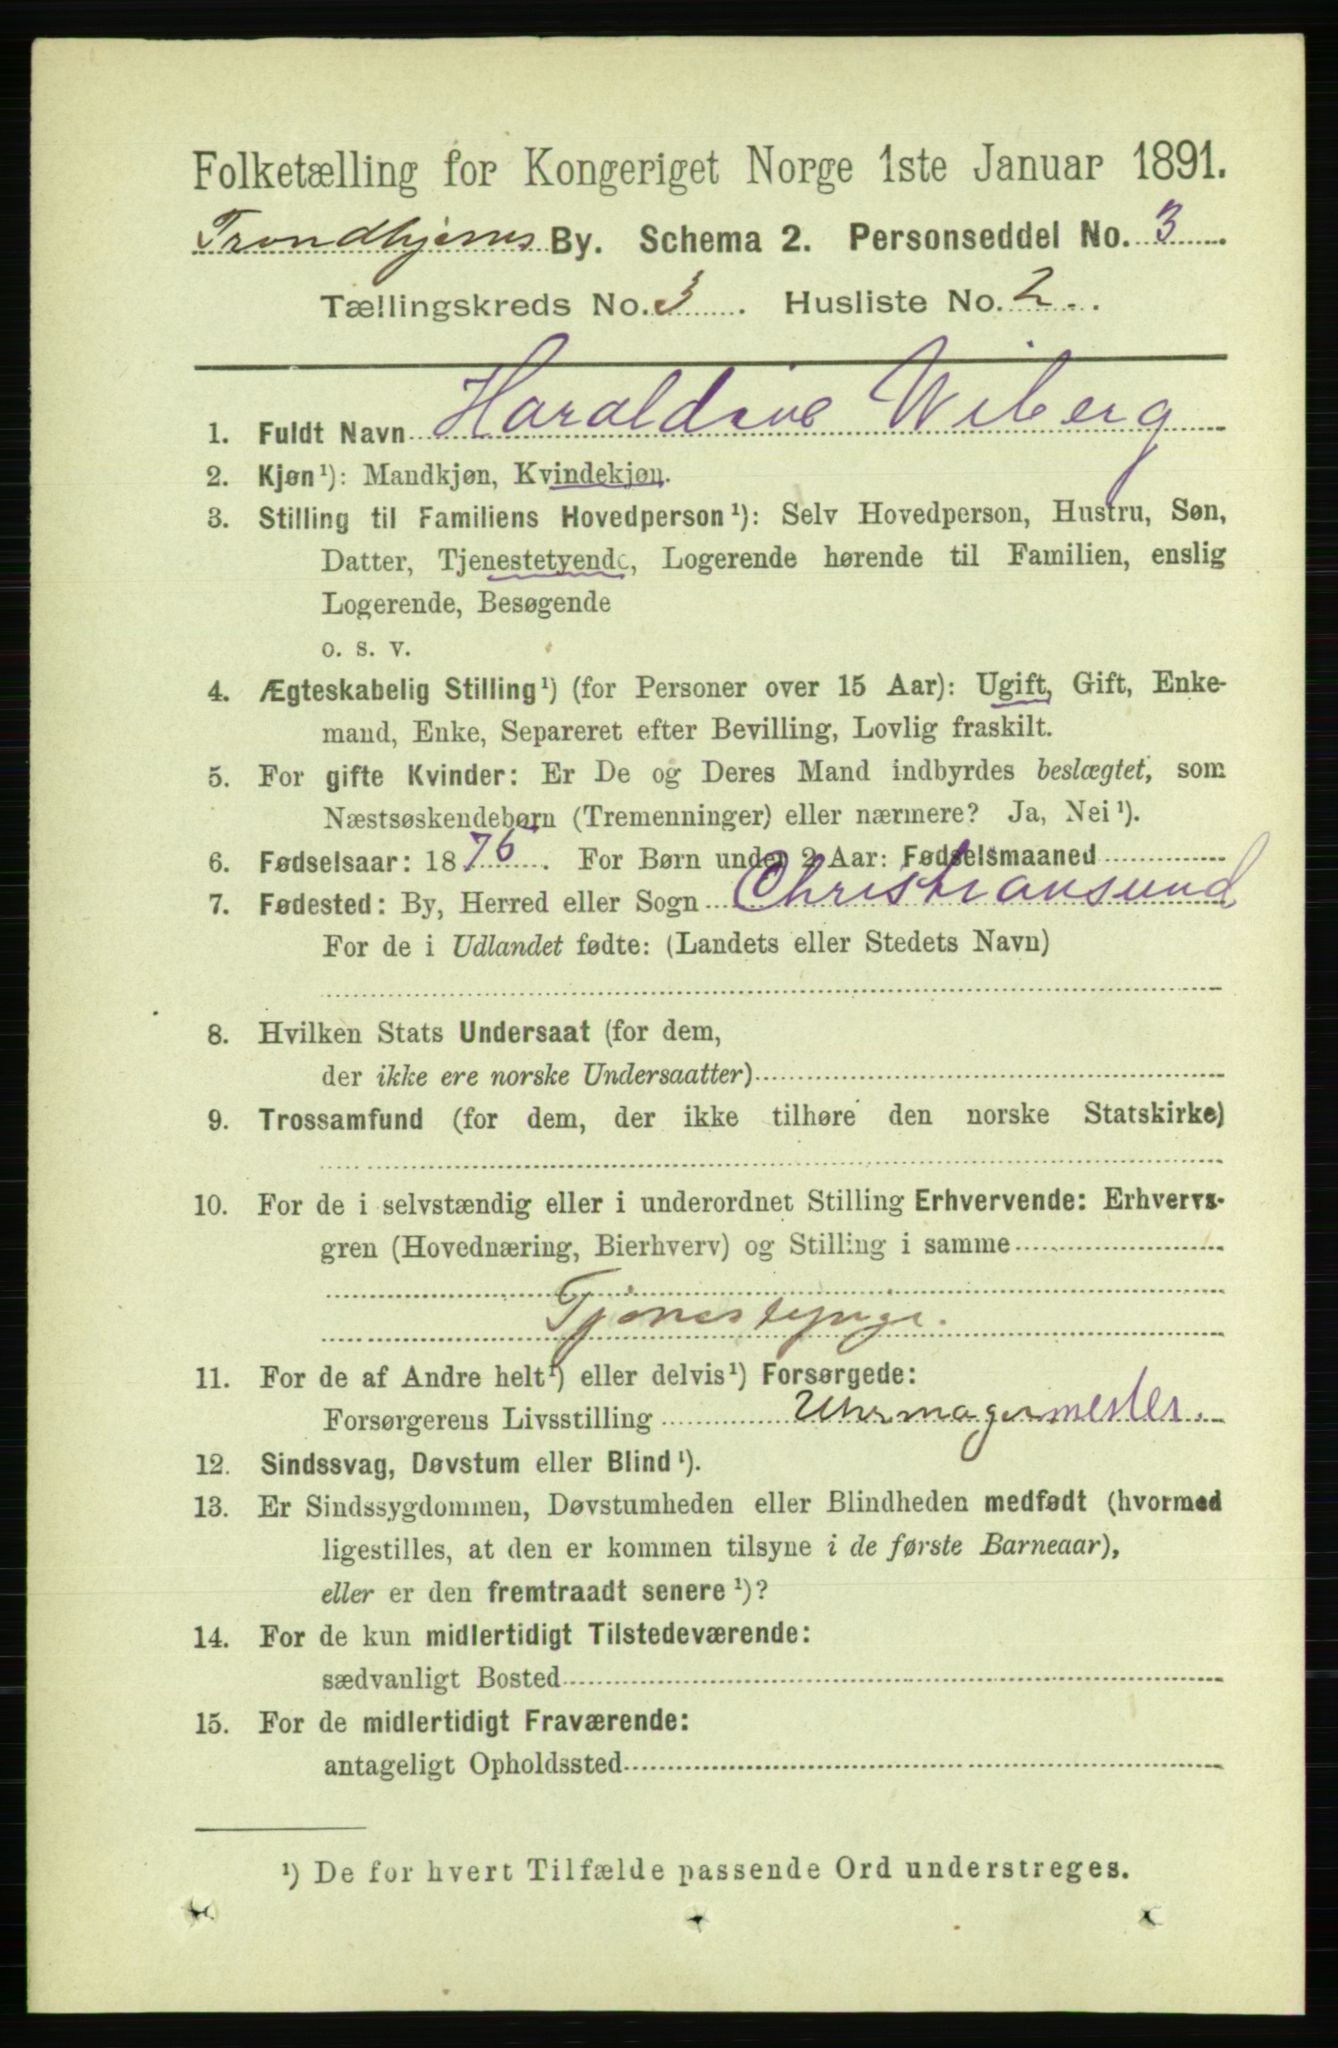 Folketælling for Kongeriget Norge 1ste Januar 1891.
Trondhjems By. Schema 2. Personseddel No. 3
Tællingskreds No. 3. Husliste No. 2.
1. Fuldt Navn Haraldine Wiberg
2. Kjøn¹): Mandkjøn, Kvindekjøn.
3. Stilling til Familiens Hovedperson¹): Selv Hovedperson, Hustru, Søn,
Datter, Tjenestetyende, Logerende hørende til Familien, enslig
Logerende, Besøgende
o. s. v.
4. Ægteskabelig Stilling¹) (for Personer over 15 Aar): Ugift, Gift, Enke-
mand, Enke, Separeret efter Bevilling, Lovlig fraskilt.
5. For gifte Kvinder: Er De og Deres Mand indbyrdes beslægtet, som
Næstsøskendebørn (Tremenninger) eller nærmere? Ja, Nei¹).
6. Fødselsaar: 1875. For Børn under 2 Aar: Fødselsmaaned
7. Fødested: By, Herred eller Sogn Christiansund
For de i Udlandet fødte: (Landets eller Stedets Navn)
8. Hvilken Stats Undersaat (for dem,
der ikke ere norske Undersaatter)
9. Trossamfund (for dem, der ikke tilhøre den norske Statskirke)
10. For de i selvstændig eller i underordnet Stilling Erhvervende: Erhvervs-
gren (Hovednæring, Bierhverv) og Stilling i samme
Tjenestepige.
11. For de af Andre helt¹) eller delvis¹) Forsørgede:
Forsørgerens Livsstilling Uhrmagermester.
12. Sindssvag, Døvstum eller Blind¹).
13. Er Sindssygdommen, Døvstumheden eller Blindheden medfødt (hvormed
ligestilles, at den er kommen tilsyne i de første Barneaar),
eller er den fremtraadt senere¹)?
14. For de kun midlertidigt Tilstedeværende:
sædvanligt Bosted
15. For de midlertidigt Fraværende:
antageligt Opholdssted
¹) De for hvert Tilfælde passende Ord understreges.